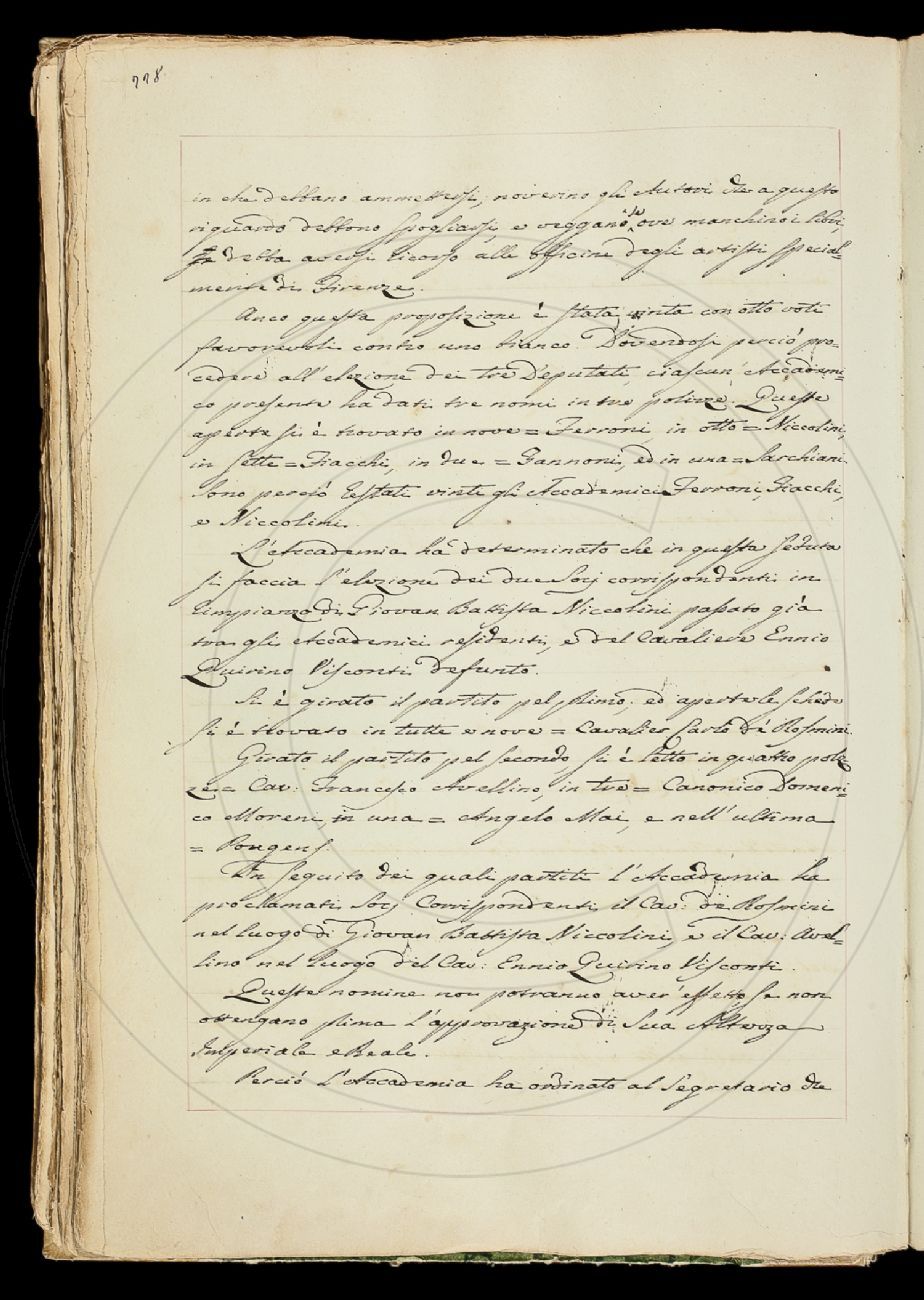 228
in che debbano ammettersi; noverino gli Autori che a questo
riguardo debbono spogliarsi, e veggano se, ove manchino i libri,
debba aversi ricorso alle officine degli artisti special=
mente di Firenze.
Anco questa proposizione è stata vinta con otto voti
favorevoli contro uno bianco. Dovendosi perciò pro=
cedere all'elezione dei tre Deputati, ciascun' Accademi=
co presente ha dati tre nomi in tre polizze. Queste
aperte si è trovato in nove = Ferroni, in otto = Niccolini,
in sette = Fiacchi, in due = Zannoni, ed in una = Sarchiani.
Sono perciò restati vinti gli Accademici Ferroni, Fiacchi,
e Niccolini.
L'Accademia ha determinato che in questa seduta
si faccia l'elezione dei due Socj corrispondenti in
rimpiazzo di Giovan Battista Niccolini passato già
tra gli Accademici residenti, e del Cavaliere Ennio
Quirino Visconti defunto.
Si è girato il partito pel primo, ed aperte le schede
si è trovato in tutte e nove = Cavalier Carlo de' Rosmini.
Girato il partito pel secondo, si è letto in quattro poliz
ze = Cav: Francesco Avellino, in tre = Canonico Domeni=
co Moreni, in una = Angelo Mai, e nell'ultima
= Pougens.
In seguito dei quali partiti l'Accademia ha
proclamati Socj Corrispondenti il Cav: de' Rosmini
nel luogo di Giovan Battista Niccolini, e il Cav: Avel=
lino nel luogo del Cav: Ennio Quirino Visconti.
Queste nomine non potranno aver effetto se non
ottengano prima l'approvazione di Sua Altezza
Imperiale e Reale.
Perciò l'Accademia ha ordinato al Segretario che